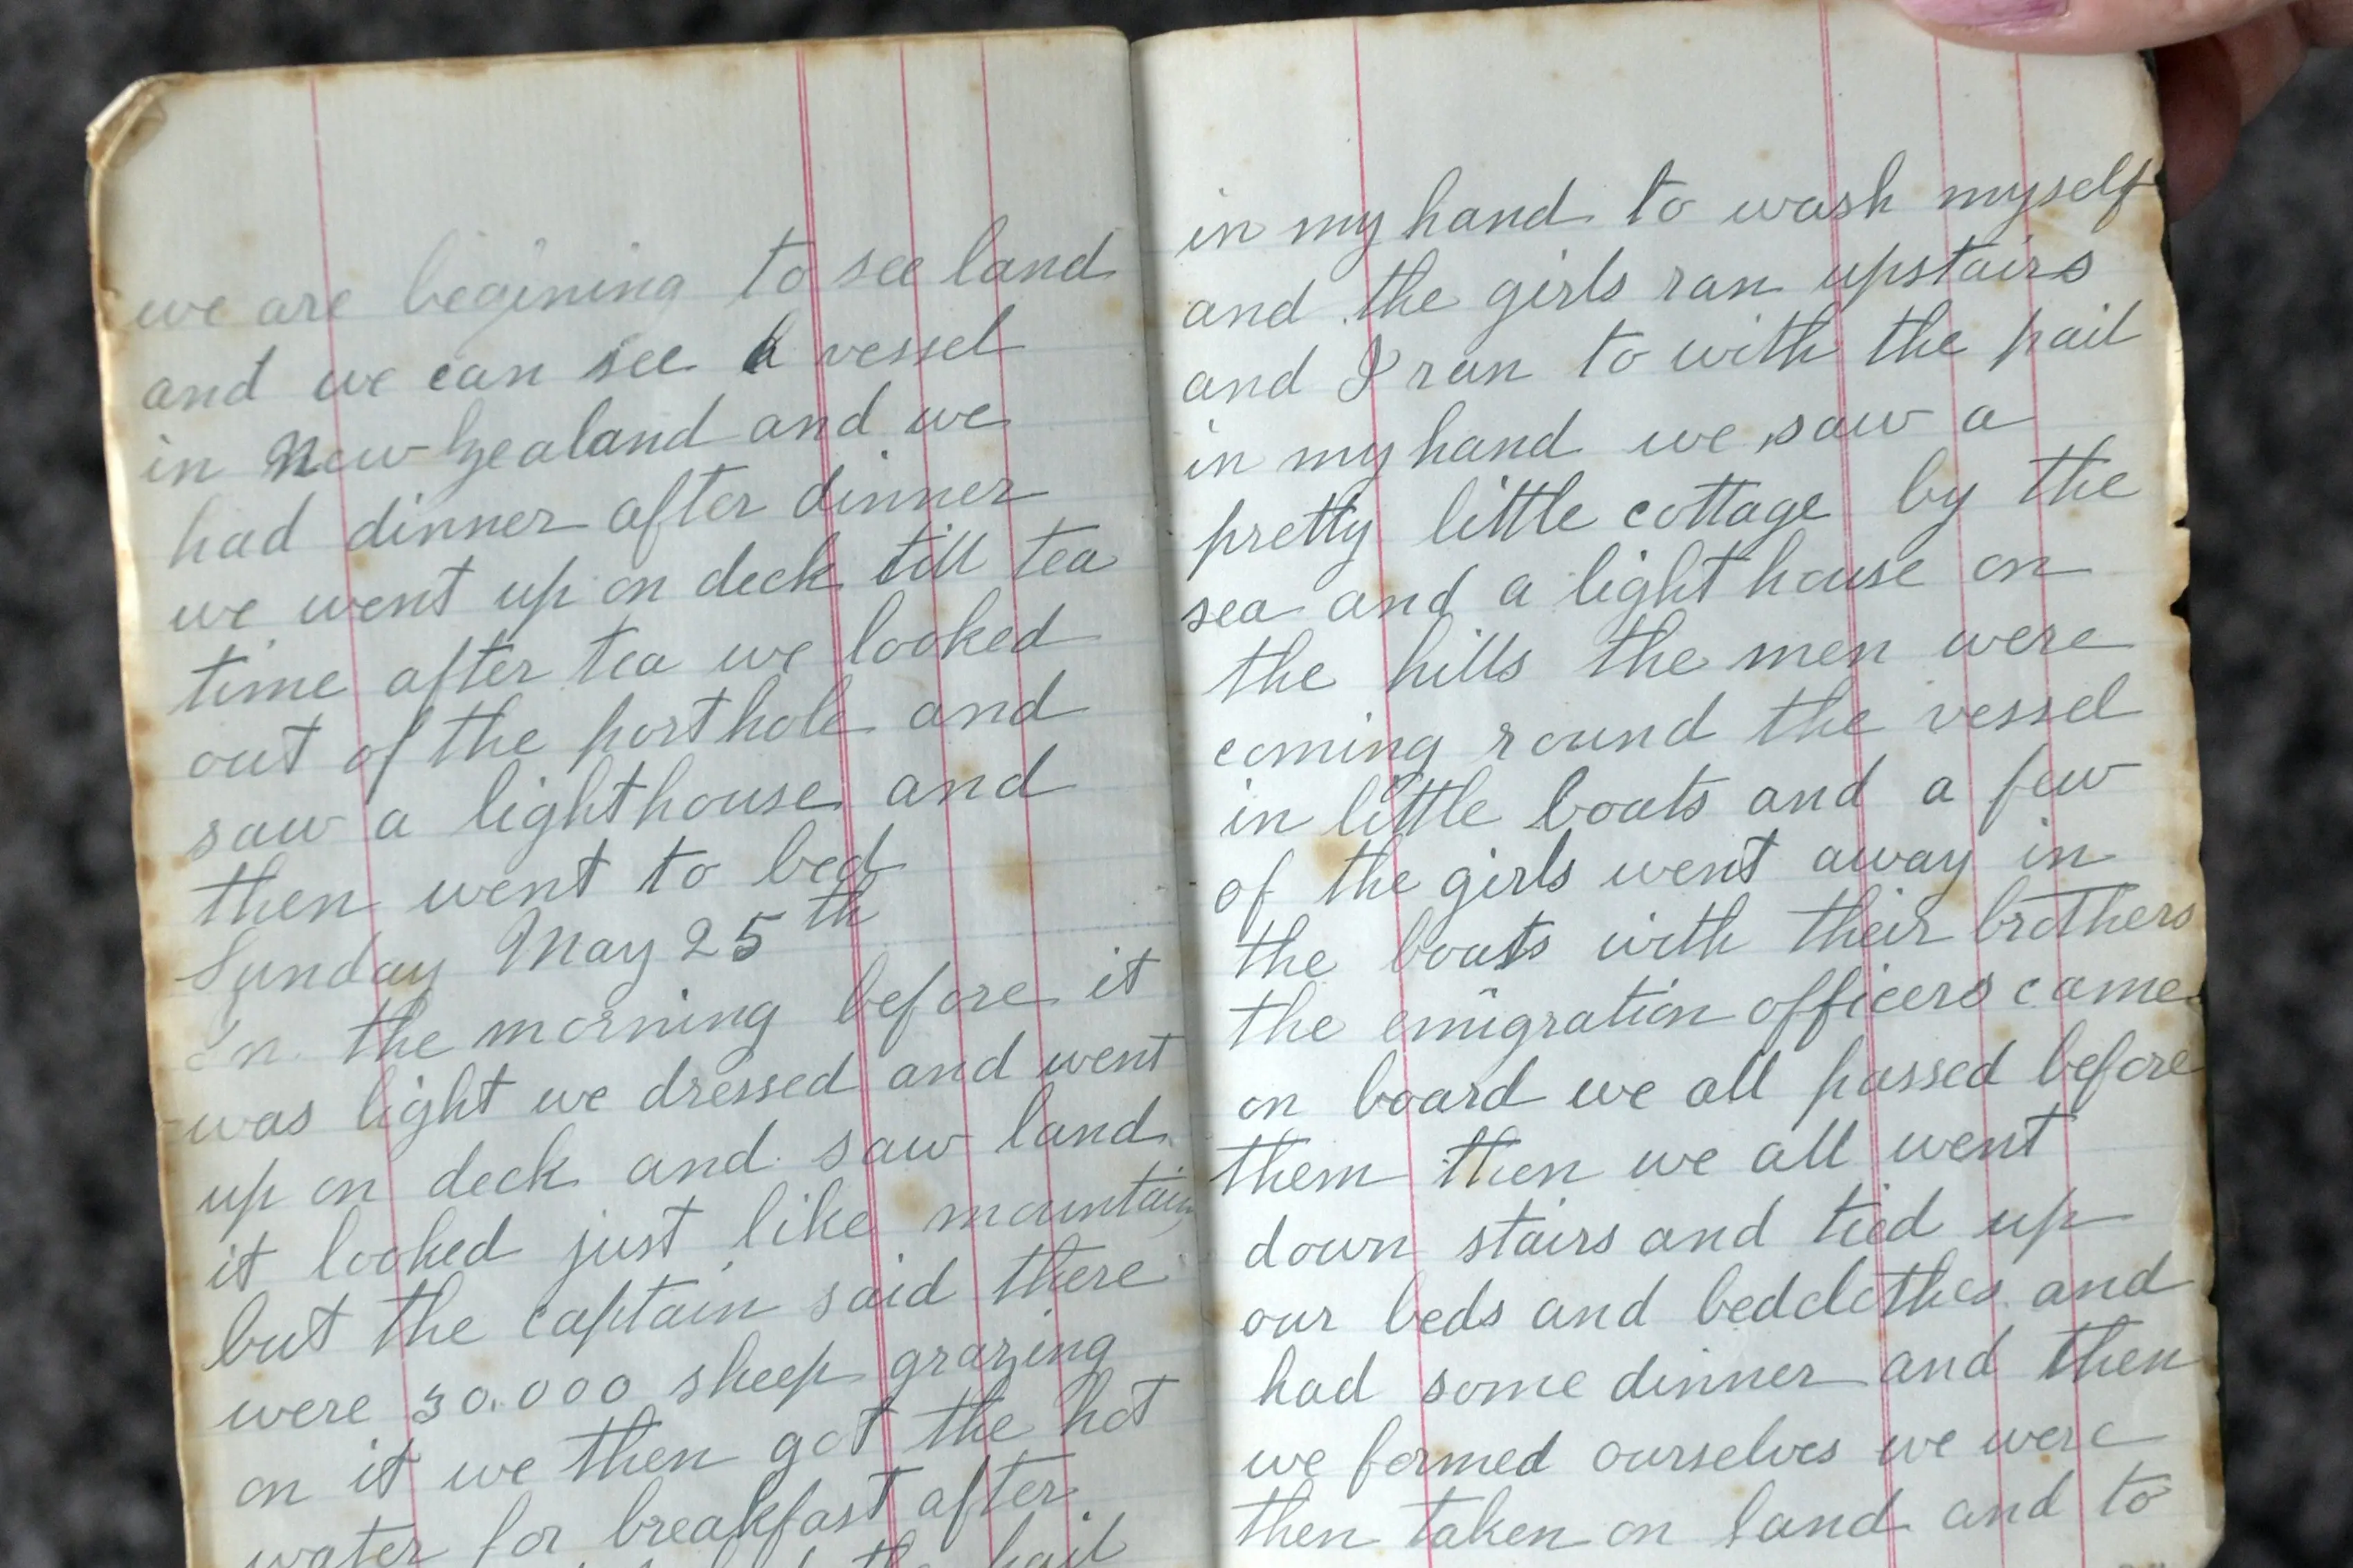 we are begining to see land
and we can see a vessel
in New Zealand and we
had dinner after dinner
we went up on deck till tea
time after tea we looked
out of the porthole and
saw a lighthouse and
then went to bed
Sunday May 25th
In the morning before it
was light we dressed and went
up on deck and saw land
it looked just like mountain
but the captain said there
were 30.000 sheep grazing
on it we then got the hot
water for breakfast after
the pail
in my hand to wash myself
and the girls ran upstairs
and I ran to with the pail
in my hand we saw a
pretty little cottage by the
sea and a light house on
the hills the men were
coming round the vessel
in little boats and a few
of the girls went away in
the boats with their brothers
the emigration officers came
on board we all passed before
them then we all went
down stairs and tied up
our beds and bedclothes and
had some dinner and then
we formed ourselves we were
then taken on land and to